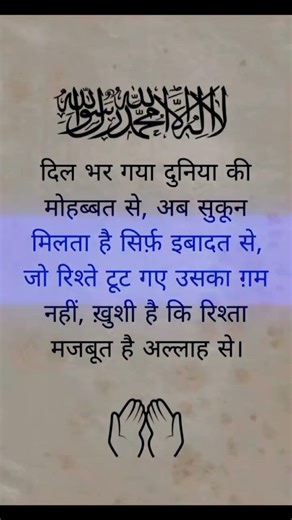 لا إله إلا الله محمد رسول الله
दिल भर गया दुनिया की
मोहब्बत से, अब सुकून
मिलता है सिर्फ़ इबादत से,
जो रिश्ते टूट गए उसका ग़म
नहीं, ख़ुशी है कि रिश्ता
मजबूत है अल्लाह से।